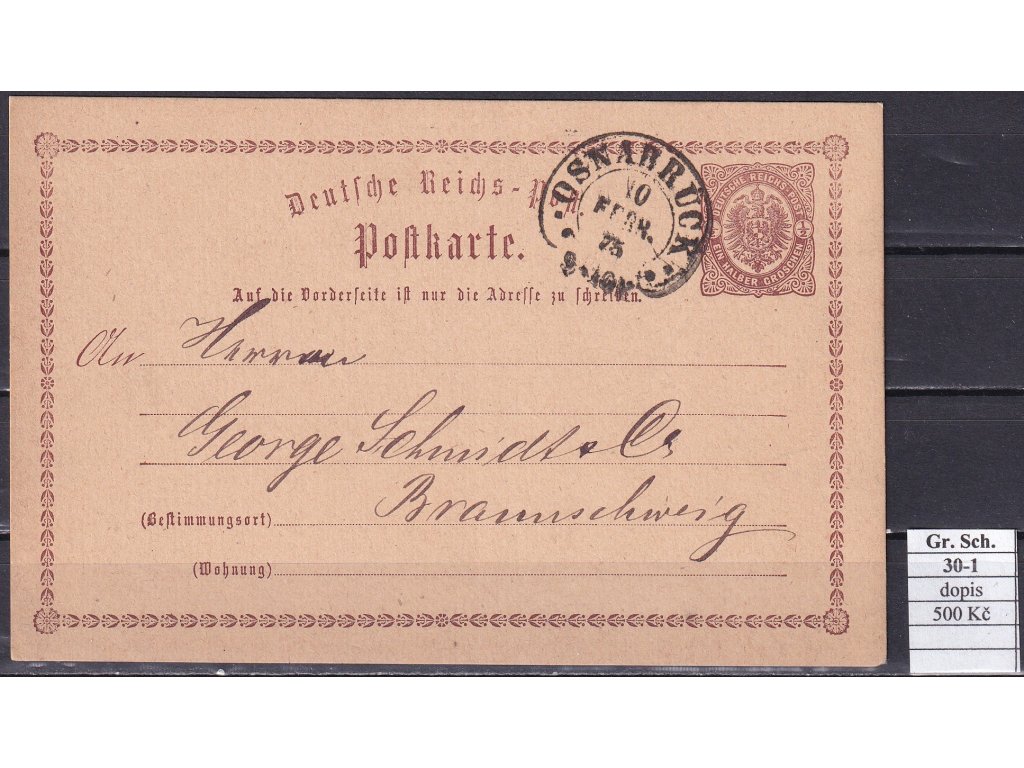 Deutsche Reichs-Post
Postkarte.
OSNABRÜCK
10
FEBR.
75
DEUTSCHE REICHS-POST
½ ½
EIN HALBER GROSCHEN
Auf die Vorderseite ist nur die Adresse zu schreiben.
An Herren
George Schmidt & Co
(Bestimmungsort) Braunschweig
(Wohnung)
Gr. Sch.
30-1
dopis
500 Kč